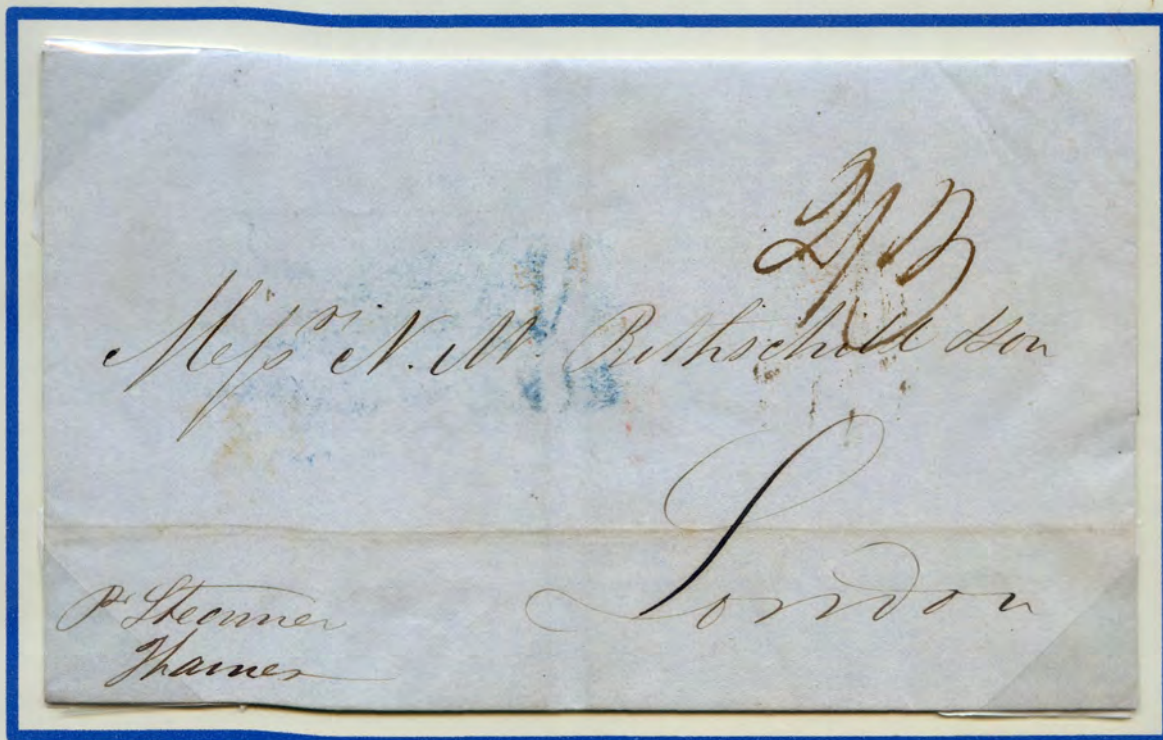 2/3
Messrs N. M. Rothschild & Son
London
Pr Steamer
Thames